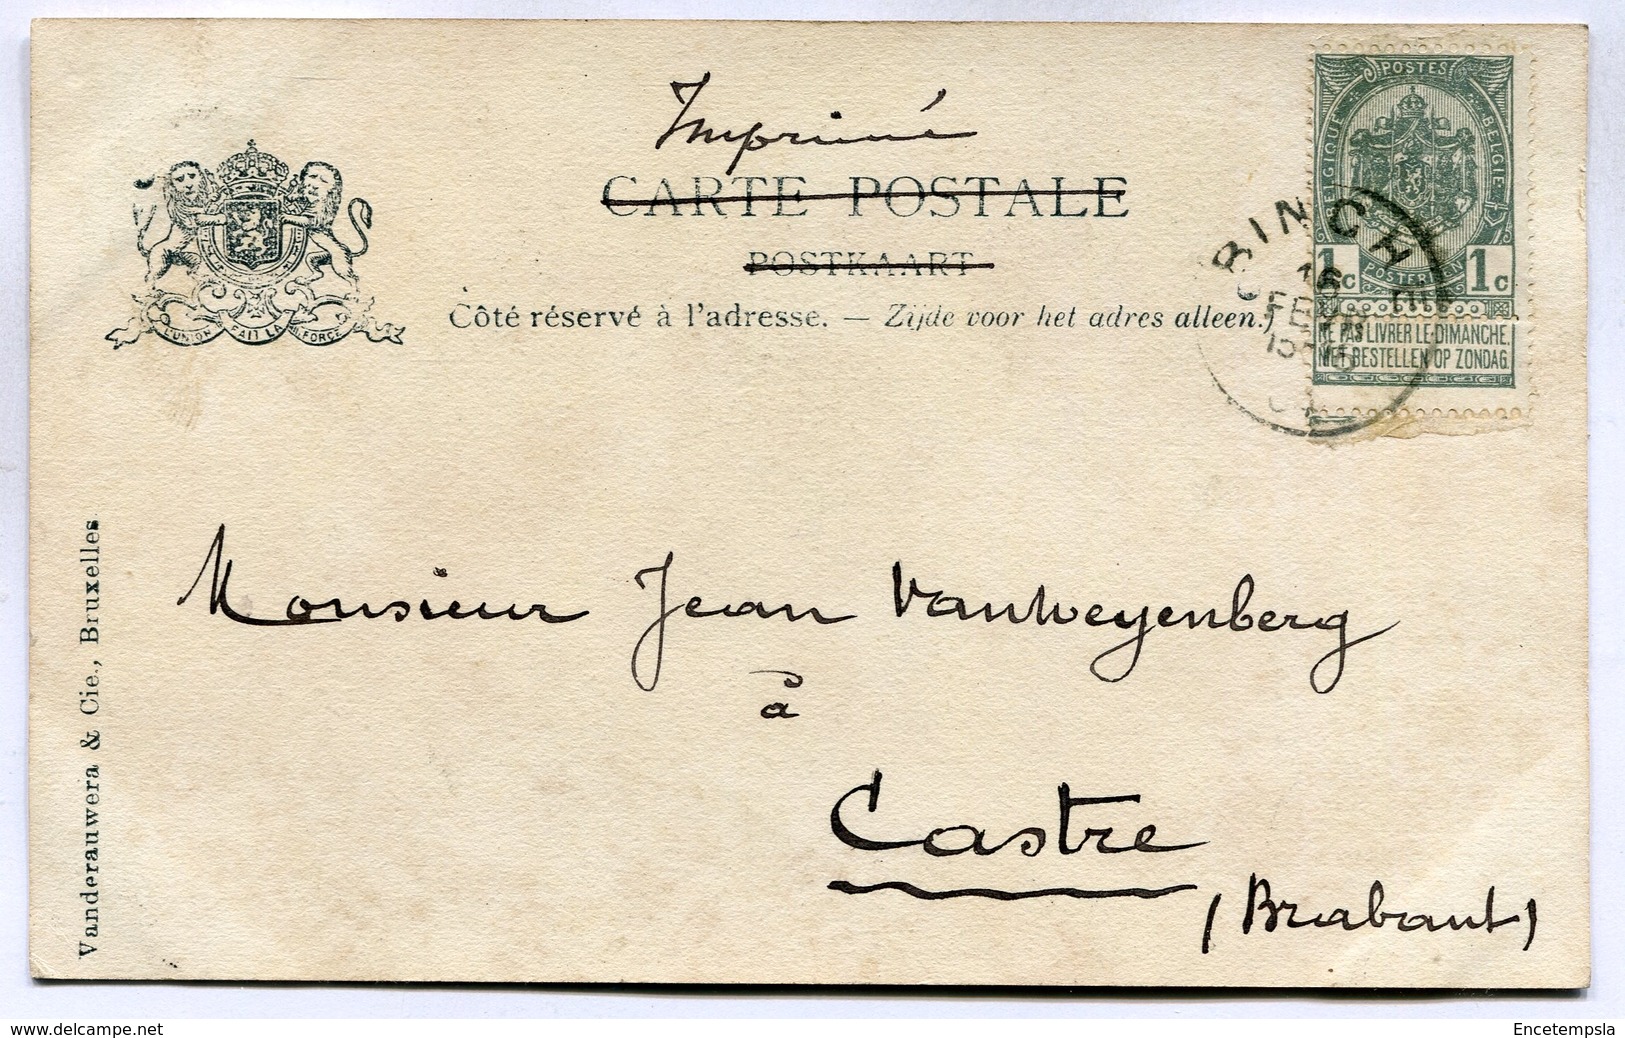 Imprimé
CARTE POSTALE
POSTKAART
Côté réservé à l'adresse. — Zijde voor het adres alleen.
L'UNION FAIT LA FORCE
POSTES
BELGIQUE BELGIE
1c POSTERIJEN 1c
NE PAS LIVRER LE DIMANCHE.
NIET BESTELLEN OP ZONDAG.
BINCHE
16
FEVR
Monsieur Jean Vanweyenberg
à
Castre
(Brabant)
Vanderauwera & Cie., Bruxelles
www.delcampe.net
Encetempsla